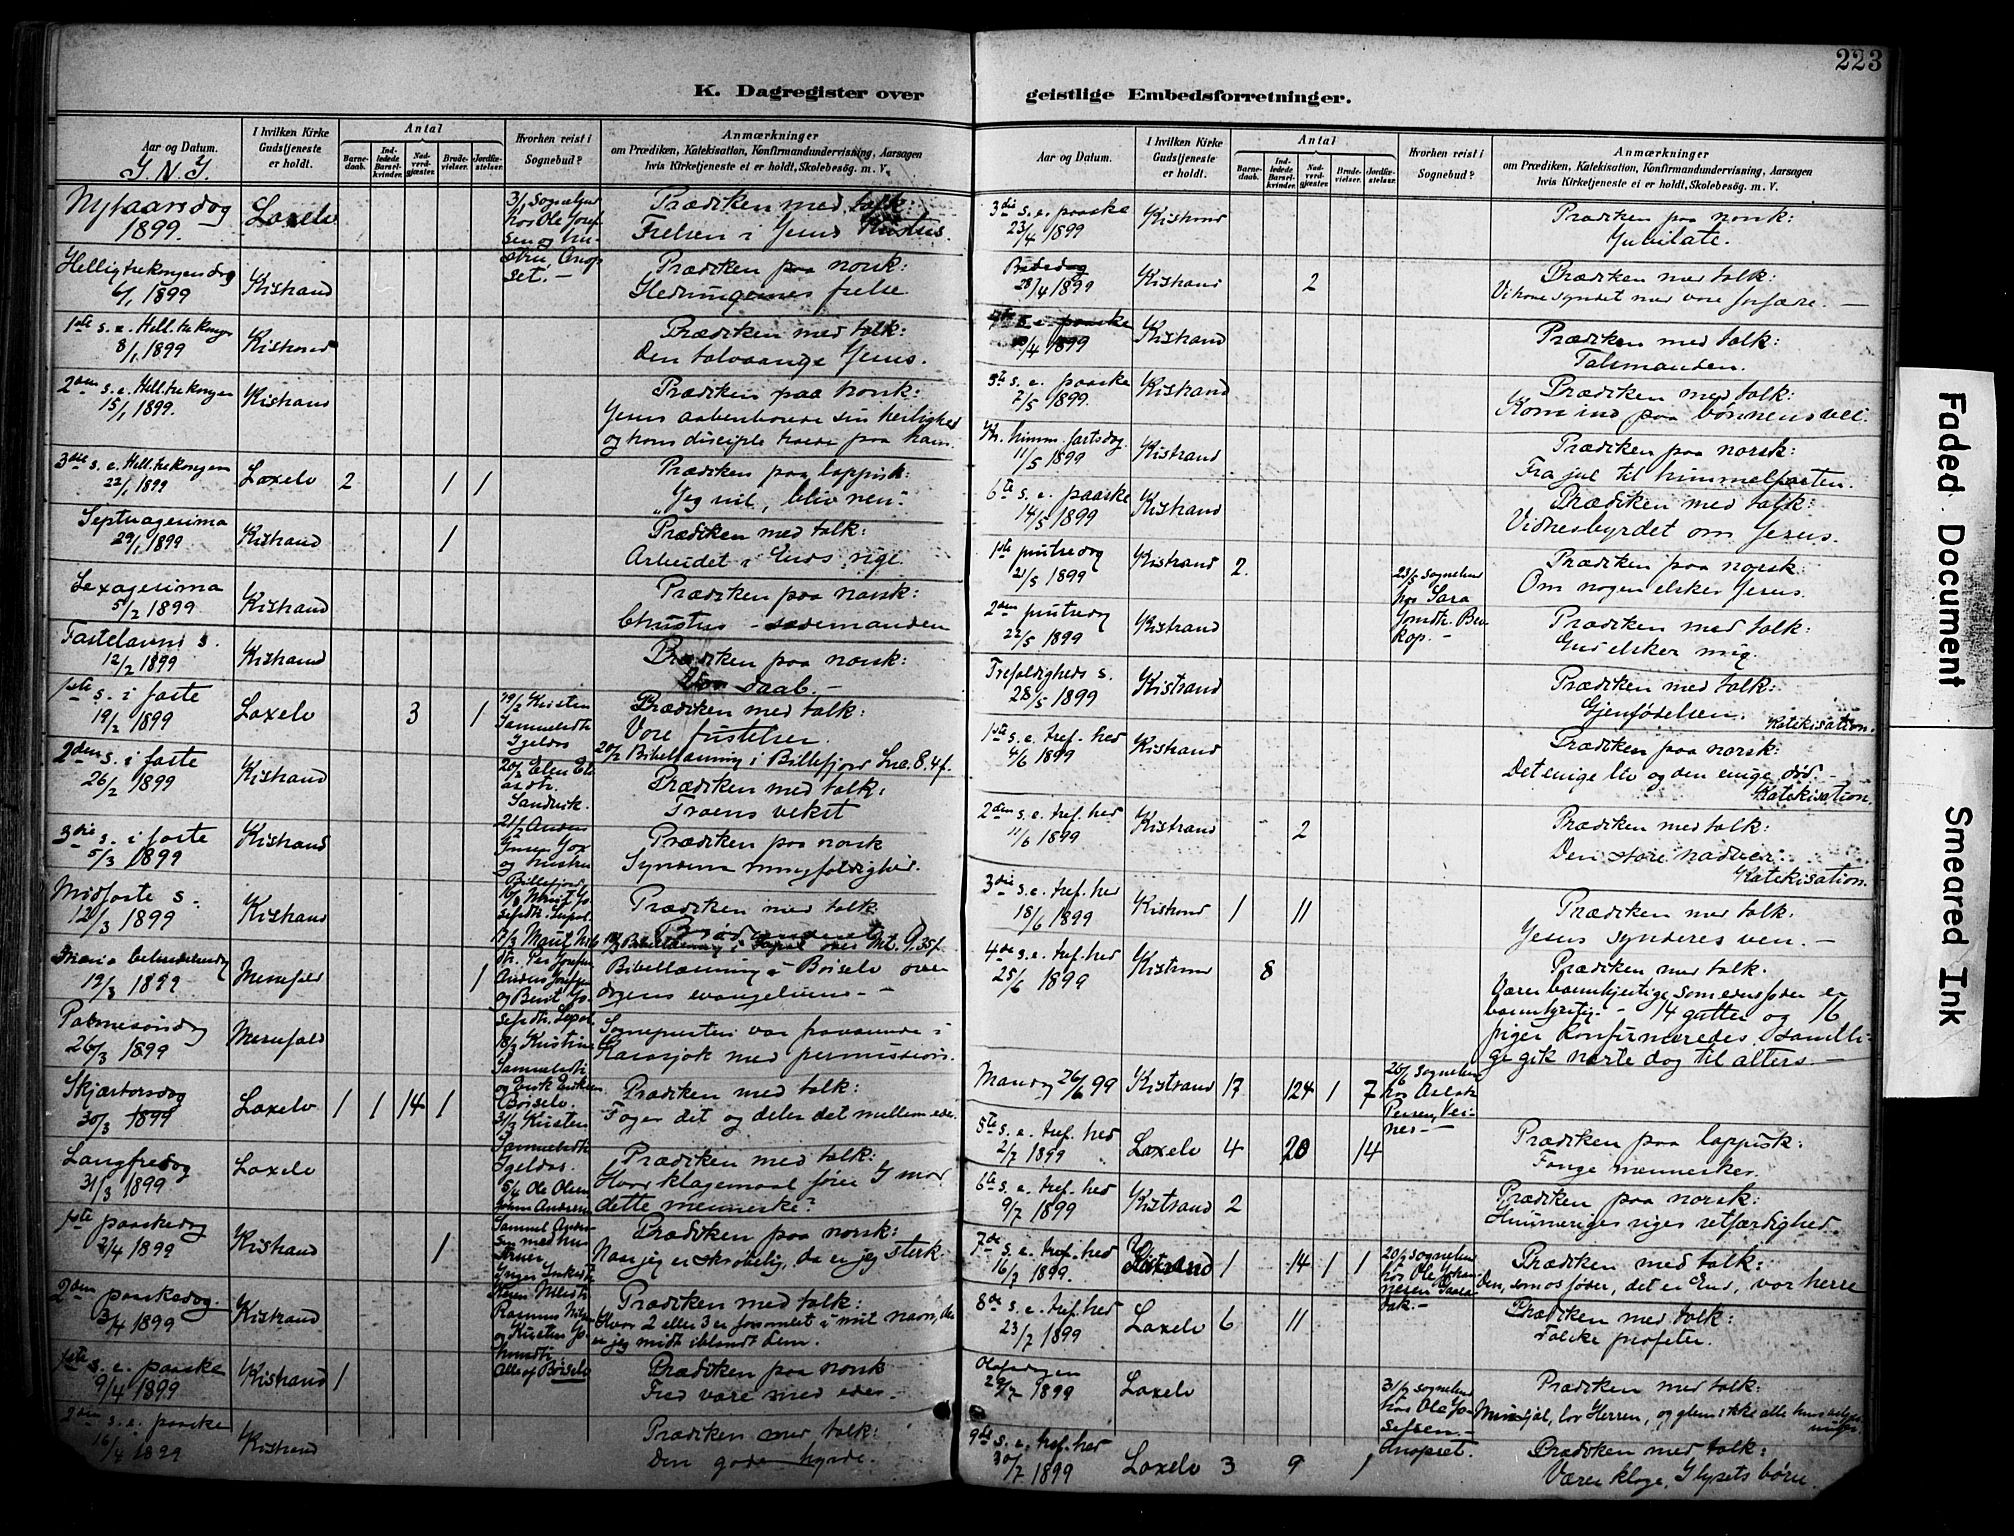 223
K. Dagregister over geistlige Embedsforretninger.
Aar og Datum.
J. N. J.
I hvilken Kirke Gudstjeneste er holdt.
Antal
Barnedaab.
Indledede Barselkvinder.
Nadverdgjæster.
Brudevielser.
Jordfæstelser.
Hvorhen reist i Sognebud?
Anmærkninger
om Prædiken, Katekisation, Konfirmandundervisning, Aarsagen
hvis Kirketjeneste ei er holdt, Skolebesøg. m. V.
Nytaarsdag
1899.
Laxelv
3/1 Sognebud
hos Ole Josefsen og hustru,
Prædiken med tolk:
Frelsen i Jesus Kristus.
Helligtrekongersdag
6/1 1899
Kistrand
Prædiken paa norsk:
Hedningernes frelse.
1ste s. e. Hell. tre konger
8/1 1899
Kistrand
Prædiken med tolk:
Den tolvaarige Jesus.
2den s. e. Hell. tre konger
15/1 1899.
Kistrand
Prædiken paa norsk:
Jesus aabenbarer sin herlighed
og hans disciple troede paa ham.
3die s. e. Hell. tre konger
22/1 1899
Laxelv
2 1 1
Prædiken paa lappisk:
"Jeg vil, bliv ren".
Septuagesima
29/1 1899
Kistrand
1
Prædiken med tolk:
Arbeidet i Guds rige.
Sexagesima
5/2 1899
Kistrand
Prædiken paa norsk:
Christus - sædemanden
Fastelavns s.
12/2 1899
Kistrand
Prædiken paa norsk:
daab. -
1ste s. i faste
19/2 1899
Laxelv
3 1
19/2 Kirsten
Samuelsdtr.
Igeldas
Prædiken med tolk:
Vore fristelser.
20/2 Bibellæsning i Billefjord Luc. 8. 4f.
2den s. i faste
26/2 1899
Kistrand
20/2 Elen
Sandvik.
Prædiken med tolk:
Troens vekst
3die s. i faste
5/3 1899
Kistrand
21/2 Anders
og hustru
Billefjord
Prædiken paa norsk
Syndens mangfoldighed.
Midfaste s.
12/3 1899
Kistrand
Prædiken med tolk:
Brødunderet
Maria bebudelsesdag
19/3 1899
Messefald
1
Bibellæsning i Børselv over
dagens evangelium -
Palmesøndag
26/3 1899
Messefald
Sognepresten var fraværende i
Karasjok med permission.
Skjærtorsdag
30/3 1899
Laxelv
1 1 14 1
Samuelsdtr.
Børselv
31/3 Kirsten
Samuelsdtr.
Igeldas.
Prædiken med tolk:
Tager det og deler det mellem eder.
Langfredag
31/3 1899
Laxelv
5/4 Ole Olsen
Prædiken med tolk:
Hvor klagemaal fører I mod
dette menneske?
1ste paaskedag
2/4 1899
Kistrand
1
Prædiken paa norsk:
Naar jeg er skrøbelig, da er jeg sterk.
2den paaskedag
3/4 1899
Kistrand
Alle af Børselv
Prædiken med tolk:
Hvor 2 eller 3 er forsamlet i mit navn, der
er jeg midt iblandt dem.
1ste s. e. paaske
9/4 1899
Kistrand
1
Prædiken paa norsk
Fred være med eder.
2den s. e. paaske
16/4 1899
Kistrand
Prædiken med tolk:
Den gode hyrde.
Aar og Datum.
I hvilken Kirke Gudstjeneste er holdt.
Antal
Barnedaab.
Indledede Barselkvinder.
Nadverdgjæster.
Brudevielser.
Jordfæstelser.
Hvorhen reist i Sognebud?
Anmærkninger
om Prædiken, Katekisation, Konfirmandundervisning, Aarsagen
hvis Kirketjeneste ei er holdt, Skolebesøg. m. V.
3die s. e. paaske
23/4 1899
Kistrand
Prædiken paa norsk:
Jubilate.
Bededag
28/4 1899
Kistrand
2
Prædiken med tolk:
Vi have syndet med vore forfædre. -
s. e. paaske
30/4 1899
Kistrand
Prædiken med tolk:
Talsmanden.
5te s. e. paaske
7/5 1899.
Kistrand
Prædiken med tolk:
Kom ind paa bønnens vei.
Kr. himmelfartsdag
11/5 1899
Kistrand
Prædiken paa norsk:
Fra jul til himmelfarten.
6te s. e. paaske
14/5 1899
Kistrand
Prædiken med tolk:
Vidnesbyrdet om Jesus.
1ste pintsedag
21/5 1899
Kistrand
2.
23/5 Sognebud
hos Sara
Prædiken paa norsk:
Om nogen elsker Jesus.
2den pintsedag
22/5 1899
Kistrand
Prædiken med tolk:
Gud elsker mig.
Trefoldigheds s.
28/5 1899
Kistrand
Prædiken med tolk:
Gjenfødelsen.
Katekisation.
1ste s. e. tref. hed
4/6 1899
Kistrand
Prædiken paa norsk:
Det evige liv og den evige død. -
Katekisation.
2den s. e. tref. hed
11/6 1899
Kistrand
2
Prædiken med tolk:
Den store nadver.
Katekisation.
3die s. e. tref. hed
18/6 1899
Kistrand
1 11
Prædiken med tolk:
Jesus synderes ven. -
4de s. e. tref. hed
25/6 1899
Kistrand
8
Prædiken med tolk.
Værer barmhjertige som eders fader er
barmhjertig. - 14 gutter og 16
piger konfirmeredes. Samtlige
gik næste dag til alters -
Mandag 26/6 99
Kistrand
17 124 1 7
26/6 Sognebud
hos Aslak
Prædiken paa lappisk:
5te s. e. tref. hed
2/7 1899
Laxelv
4 20 14
Fange mennesker.
6te s. e. tref. hed
9/7 1899
Kistrand
2
Prædiken paa norsk:
Himmeriges riges retfærdighed.
7de s. e. tref. hed
16/7 1899.
Kistrand
1 14 1 1
20/7 sognebud
hos Ole
Prædiken med tolk:
Den, som os føder, det er Gud, vor herre
8de s. e. tref. hed
23/7 1899
Laxelv
6 11
Prædiken med tolk:
Falske profeter.
Olafsdagen
29/7 1899
Laxelv
31/7 sognebud
hos Ole Josefsen.
Prædiken med tolk:
Min sjæl, lov Herren, og glem ikke alle hans
9de s. e. tref. hed
30/7 1899
Laxelv
3 9 1
Prædiken med tolk:
Værer kloge, I lysets børn.
Faded Document
Smeared Ink